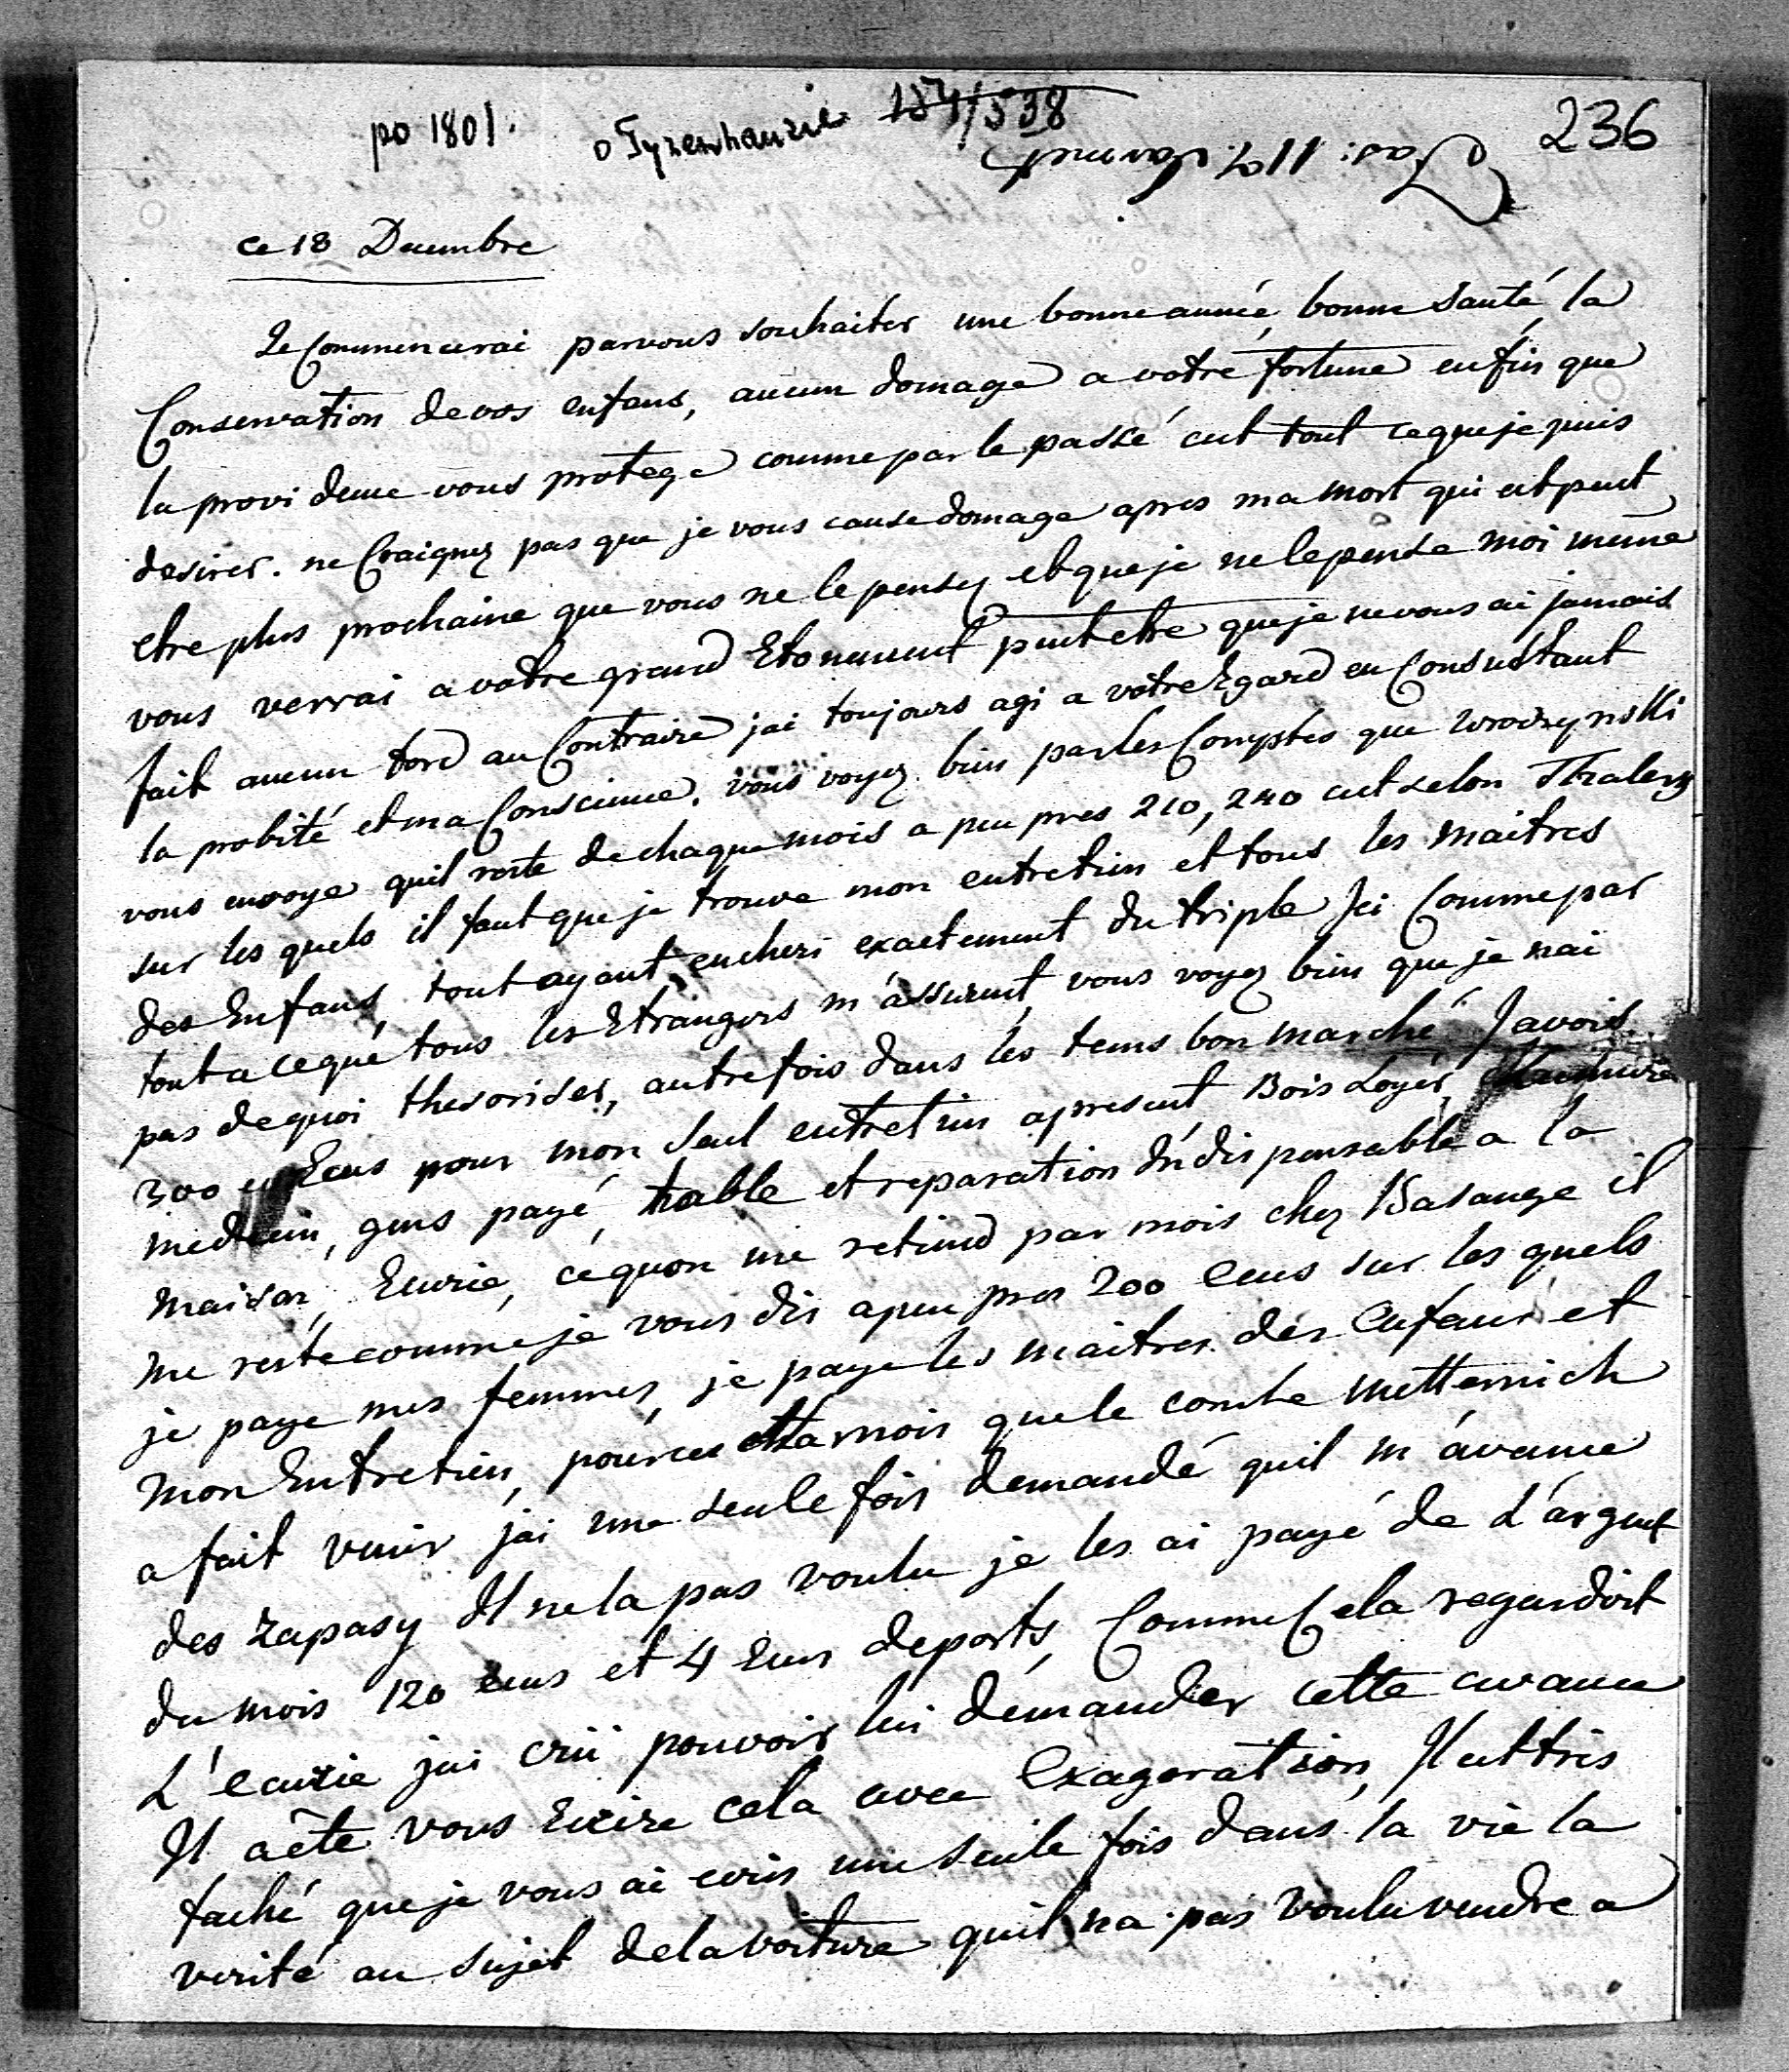 po 1801.
o Tyzenhauzie
157/538
236
ce 18 Decembre
Je Commencerai par vous souhaiter une bonne année, bonne santé, la
Conservation de vos enfans, aucun domage a votre fortune enfin que
la providence vous protege comme par le passé cest tout ce que je puis
desirer. ne Craignez pas que je vous cause domage apres ma mort qui est peut
etre plus prochaine que vous ne le pensez et que je ne le pense moi meme
vous verrai a votre grand Etonnement peut etre que je ne vous ai jamais
fait aucun tord au Contraire jai toujours agi a votre Egard en Consultant
la probité et ma Conscience. vous voyez bien par les Comptes que
vous envoye quil reste de chaque mois a peu pres 210, 240 cest selon
sur les quels il faut que je trouve mon entretien et tous les maitres
des Enfans, tout ayant encheri exactement du triple Ici Comme par
tout a ce que tous les Etrangers m'assurent, vous voyez bien que je nai
pas de quoi thesoriser, autrefois dans les tems bon marché Javois
300 Ecus pour mon seul entretien apresent Bois Loyer,
medecin, gens payé, table et reparation Indispensable a la
maison, Ecurie, ce quon me retiend par mois chez Basange il
me reste comme je vous dis a peu pres 200 Ecus sur les quels
je paye mes femmes, je paye les maitres des Enfans et
mon Entretien, pour ces que le comte Metternich
a fait venir jai une seule fois demandé quil m'avance
des zapasy Il ne la pas voulu je les ai payé de l'argent
du mois 120 ecus et 4 Ecus de ports, Comme Cela regardoit
L'ecurie jai crû pouvoir lui demander cette avance
Il a été vous Ecrire cela avec Exageration, Il est tres
faché que je vous ai ecris une seule fois dans la vie la
verité au sujet de la voiture quil na pas voulu vendre a